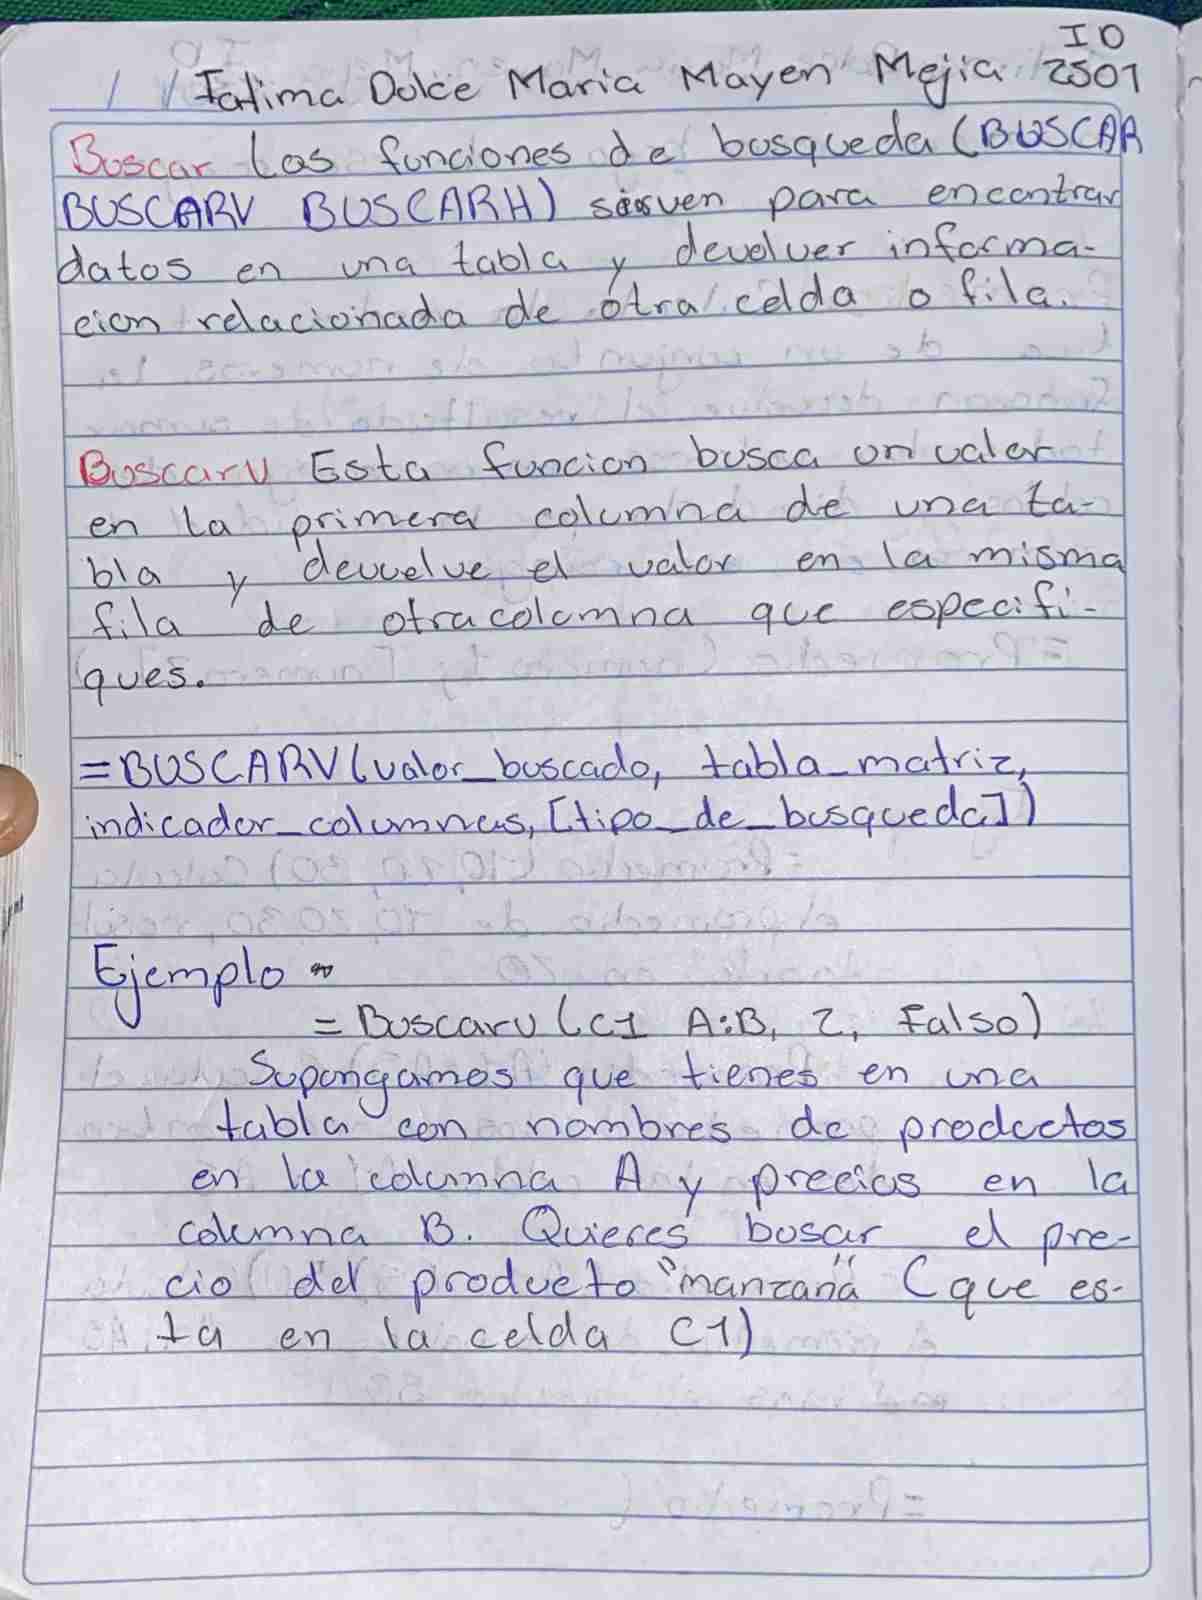 ID
Fatima Dulce Maria Mayen Mejia 2501
Buscar Las funciones de busqueda (BUSCAR
BUSCARV BUSCARH) sirven para encontrar
datos en una tabla y devolver informa-
cion relacionada de otra celda o fila.
Buscarv Esta funcion busca un valor
en la primera columna de una ta-
bla y devuelve el valor en la misma
fila de otra columna que especifi-
ques.
=BUSCARV(valor_buscado, tabla_matriz,
indicador_columnas, [tipo_de_busqueda])
Ejemplo
= Buscarv (C1 A:B, 2, Falso)
Supongamos que tienes en una
tabla con nombres de productos
en la columna A y precios en la
columna B. Quieres busar el pre-
cio del producto "manzana" (que es-
ta en la celda C1)